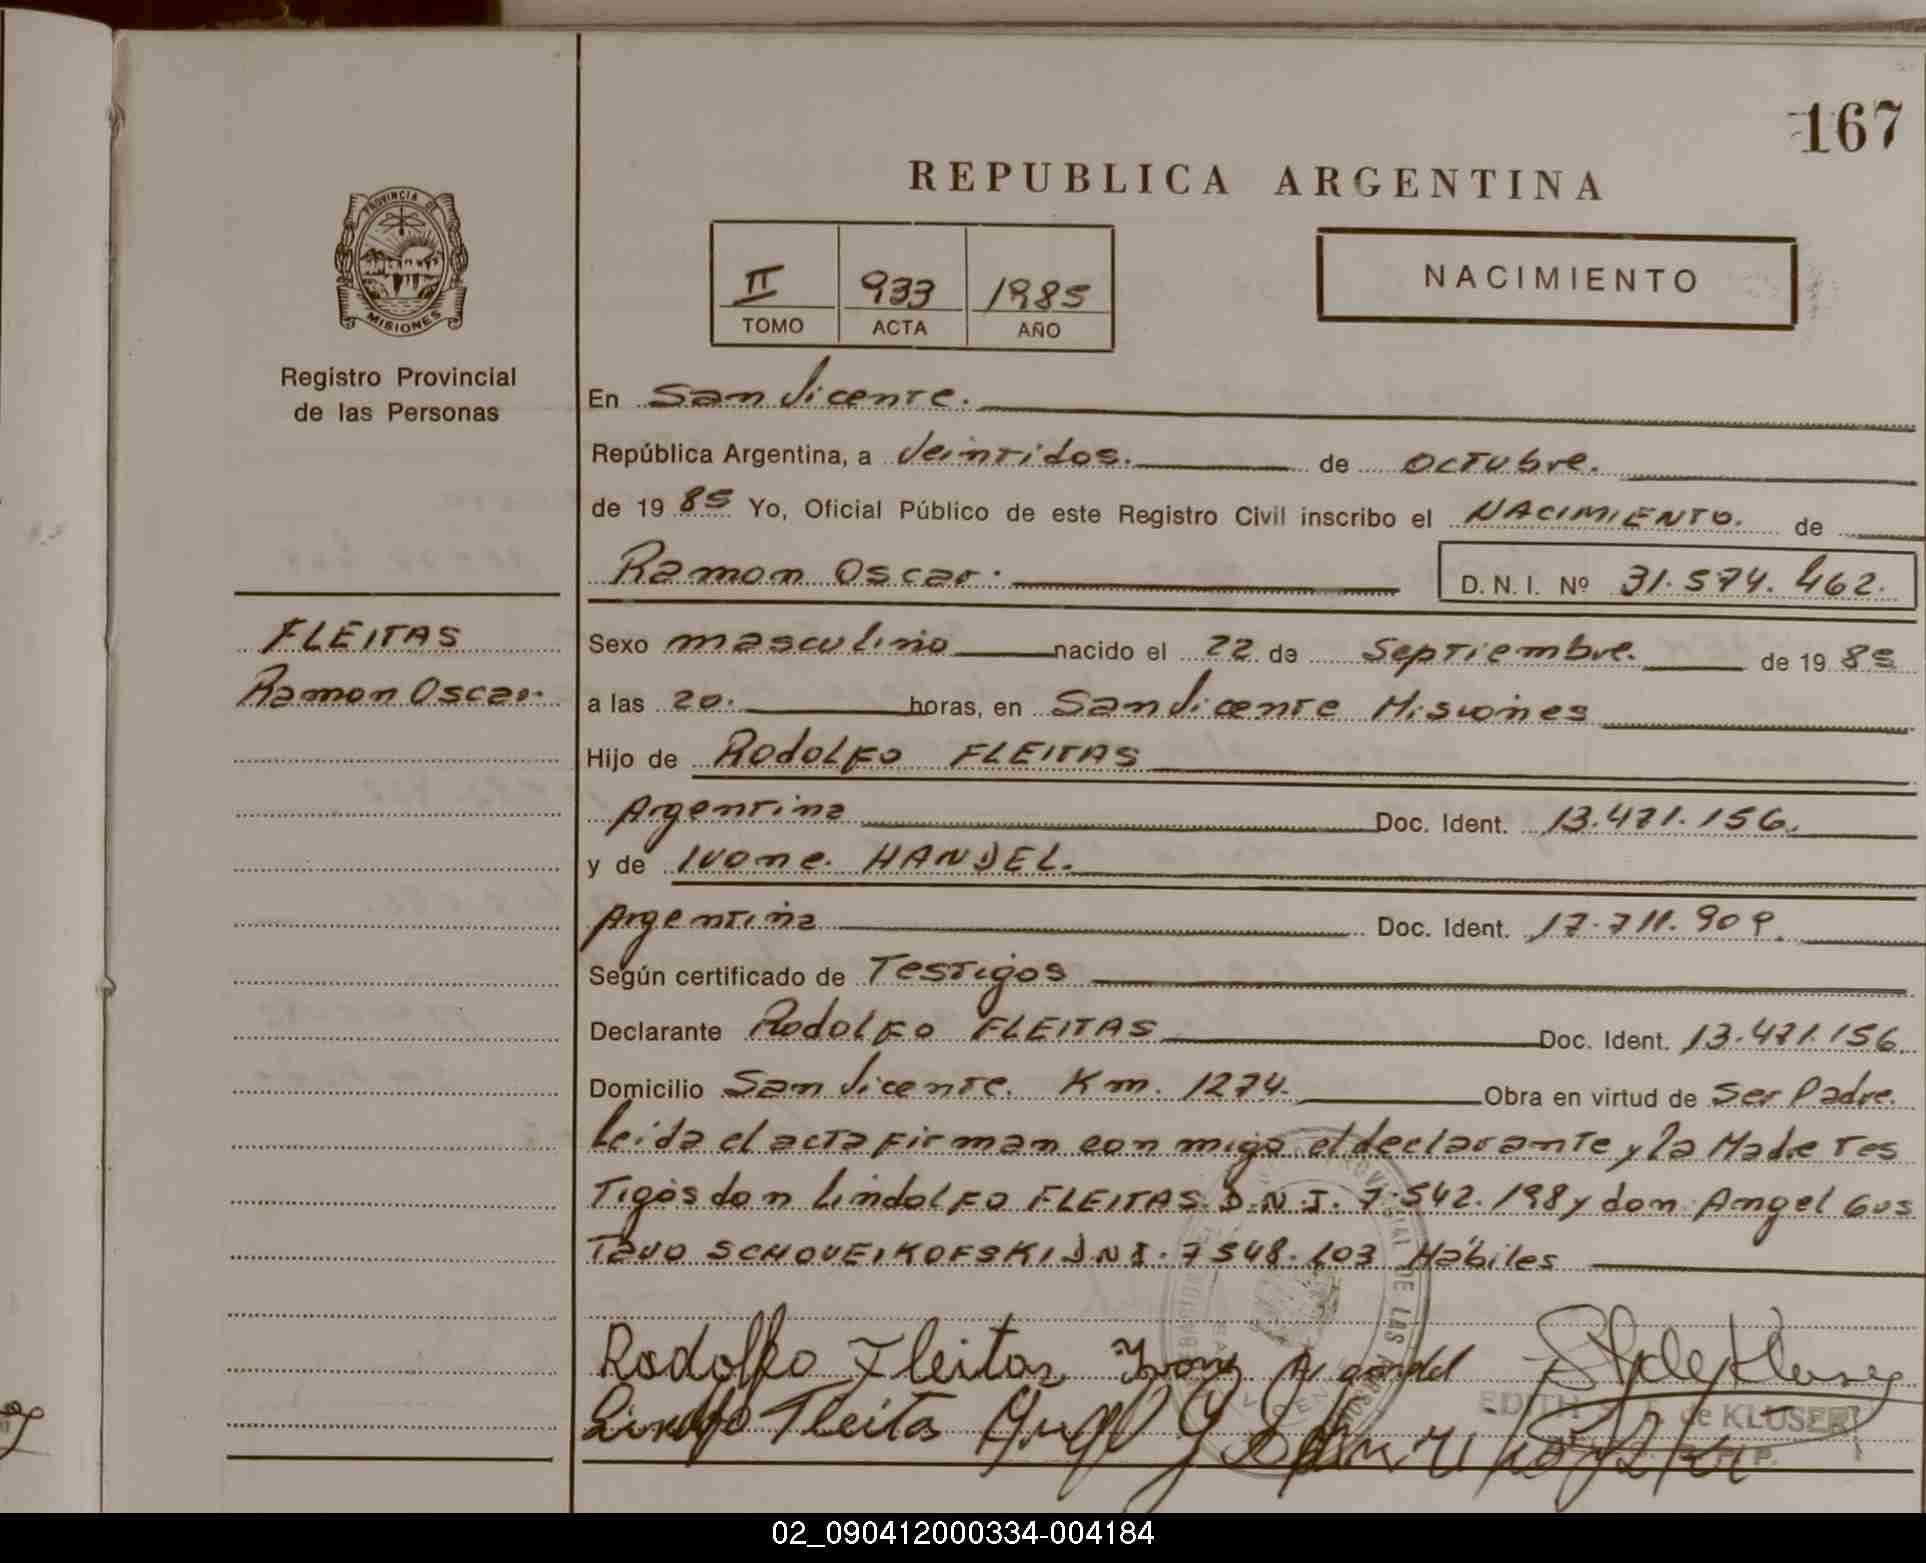 167
REPUBLICA ARGENTINA
PROVINCIA DE
MISIONES
Registro Provincial
de las Personas
II 933 1985
TOMO ACTA AÑO
NACIMIENTO
En San Vicente.
República Argentina, a Veintidos. de Octubre.
de 19 85 Yo, Oficial Público de este Registro Civil inscribo el NACIMIENTO. de
Ramon Oscar. D. N. I. Nº 31.574.462.
FLEITAS
Ramon Oscar.
Sexo masculino nacido el 22 de Septiembre. de 19 85
a las 20. horas, en San Vicente Misiones
Hijo de Rodolfo FLEITAS
Argentina Doc. Ident. 13.471.156.
y de Ivone. HANDEL.
Argentina Doc. Ident. 17.711.909.
Según certificado de Testigos
Declarante Rodolfo FLEITAS Doc. Ident. 13.471.156.
Domicilio San Vicente. Km. 1274. Obra en virtud de Ser Padre.
Leida el acta firman con migo el declarante y la Madre Tes
Tigos don Lindolfo FLEITAS. D.N.I. 7.542.198 y don Angel Gus
Tavo SCHOVEIKOFSKI D.N.I. 7548.103 Hábiles
Rodolfo Fleitas
Fleitas
EDITH de KLUSER
02_090412000334-004184